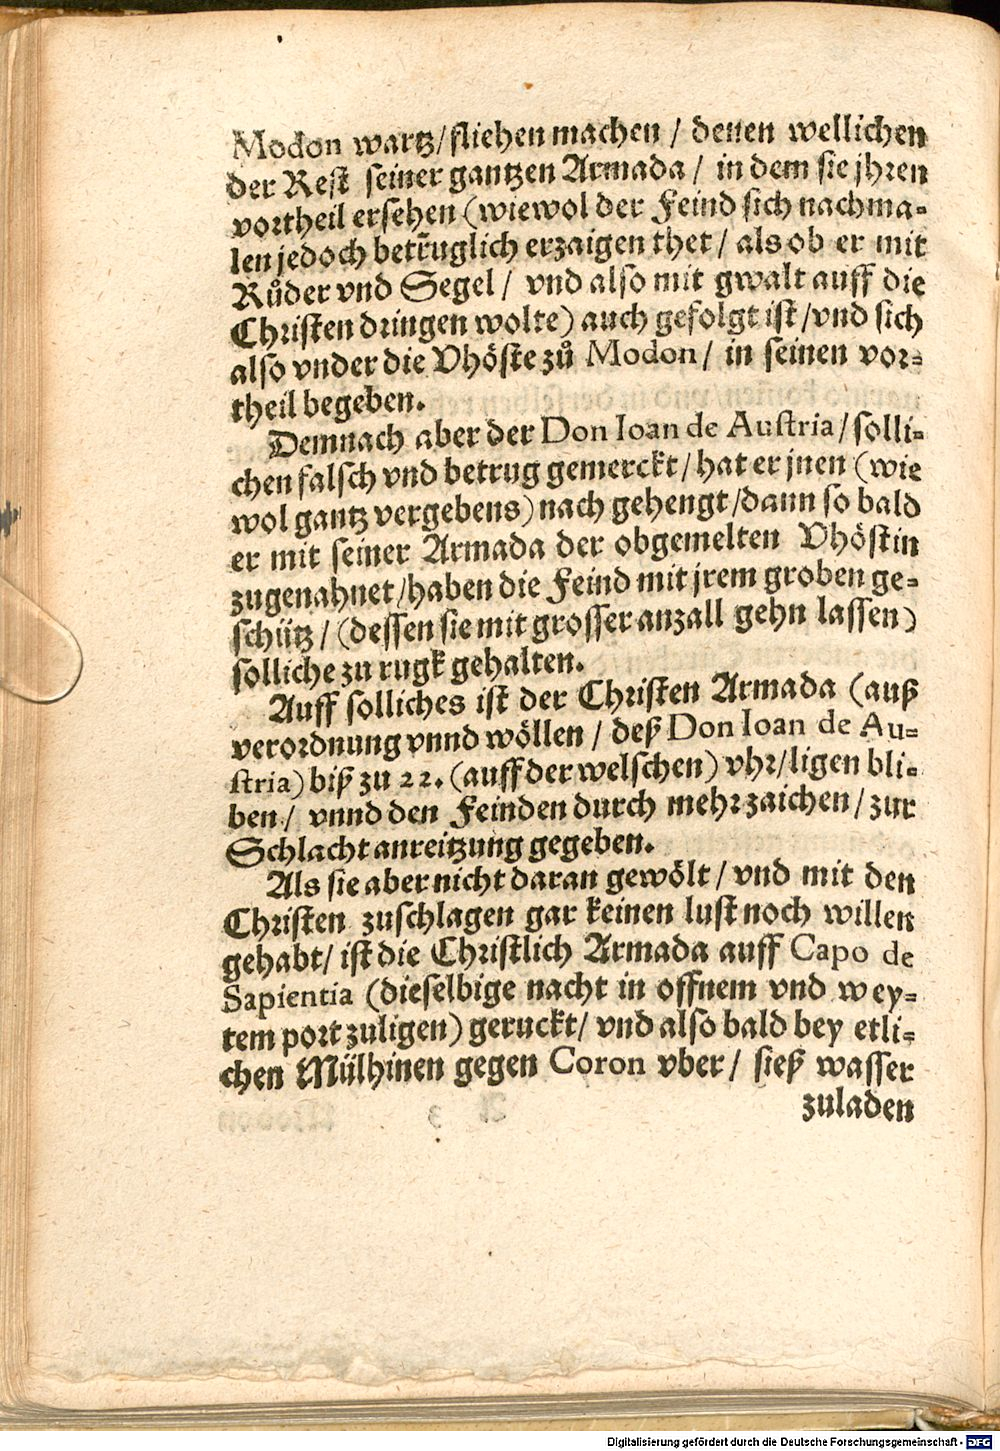 Modon wartz/fliehen machen / denen wellichen
der Rest seiner gantzen Armada / in dem sie jhren
vortheil ersehen (wiewol der Feind sich nachma-
len jedoch betruglich erzaigen thet / als ob er mit
Růder vnd Segel / vnd also mit gwalt auff die
Christen dringen wolte) auch gefolgt ist /vnd sich
also vnder die Vhöste zů Modon / in seinen vor-
theil begeben.
Demnach aber der Don Ioan de Austria / solli-
chen falsch vnd betrug gemerckt / hat er jnen (wie
wol gantz vergebens) nach gehengt /dann so bald
er mit seiner Armada der obgemelten Vhöstin
zugenahnet /haben die Feind mit jrem groben ge-
schütz / (dessen sie mit grosser anzall gehn lassen)
solliche zu rugk gehalten.
Auff solliches ist der Christen Armada (auß
verordnung vnnd wöllen / deß Don Ioan de Au-
stria) biß zu 22. (auff der welschen) vhr/ligen bli-
ben / vnnd den Feinden durch mehr zaichen / zur
Schlacht anreitzung gegeben.
Als sie aber nicht daran gewölt / vnd mit den
Christen zuschlagen gar keinen lust noch willen
gehabt/ ist die Christlich Armada auff Capo de
Sapientia (dieselbige nacht in offnem vnd wey-
tem port zuligen) geruckt/ vnd also bald bey etli-
chen Mülhinen gegen Coron vber / sieß wasser
zuladen
Digitalisierung gefördert durch die Deutsche Forschungsgemeinschaft - DFG